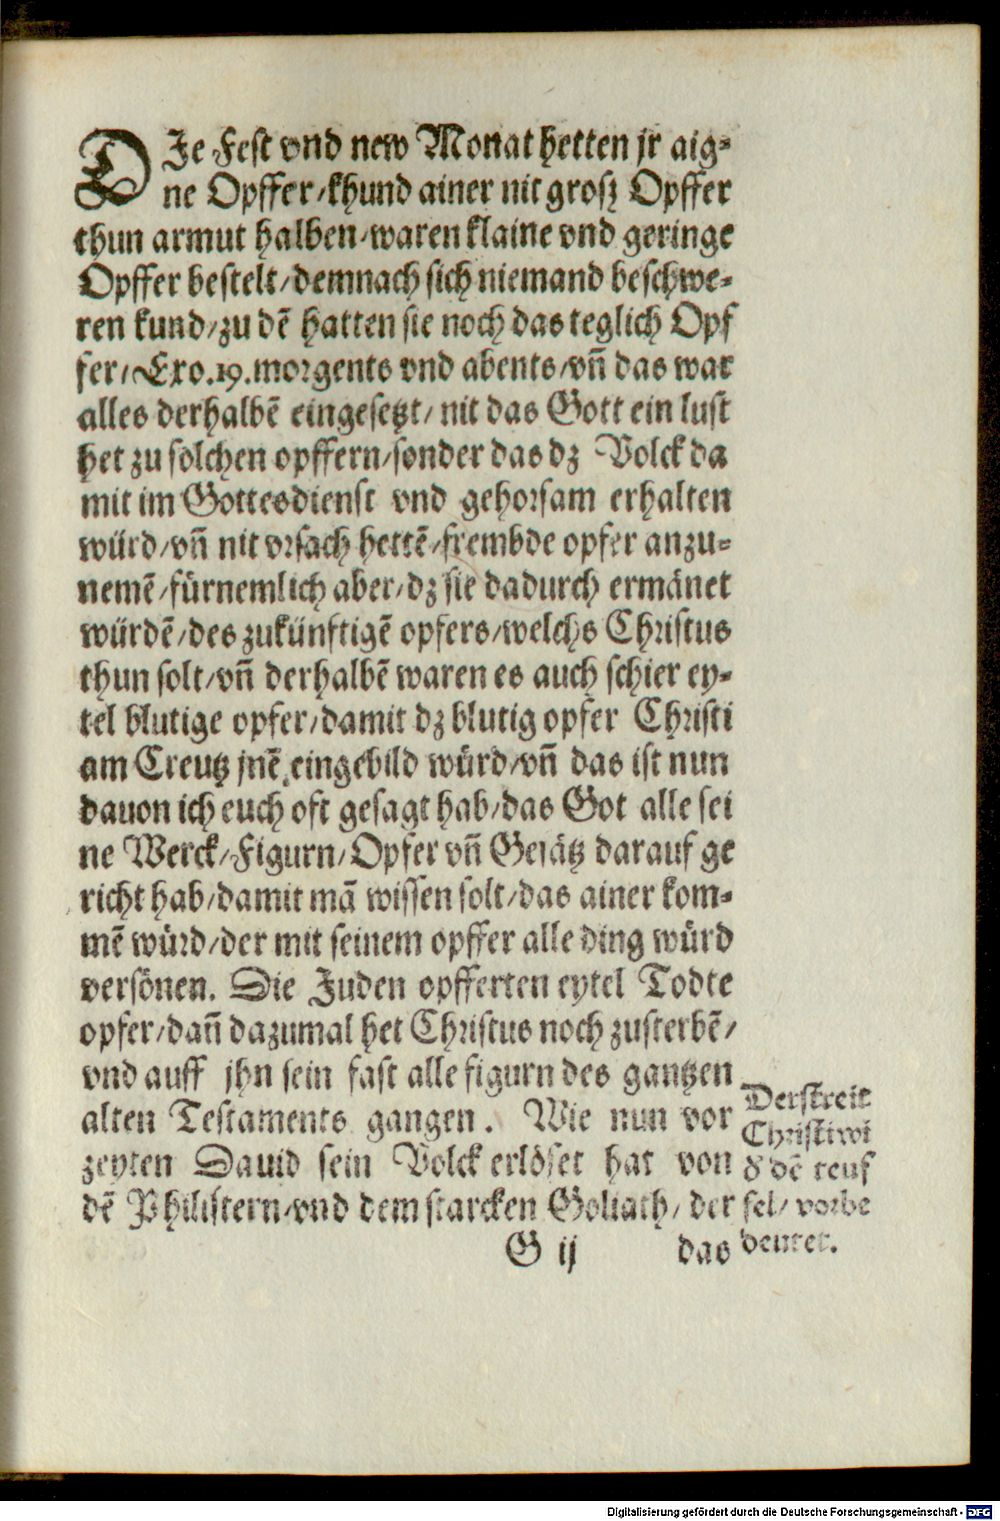 DIe Fest vnd new Monat hetten jr aig-
ne Opffer/khund ainer nit grosz Opffer
thun armut halben/waren klaine vnd geringe
Opffer bestelt/demnach sich niemand beschwe-
ren kund/zu dē hatten sie noch das teglich Opf
fer/Exo.19.morgents vnd abents/vn̄ das war
alles derhalbē eingesetzt/nit das Gott ein lust
het zu solchen opffern/sonder das dz Volck da
mit im Gottesdienst vnd gehorsam erhalten
würd/vn̄ nit vrsach hettē/frembde opfer anzu-
nemē/fürnemlich aber/dz sie dadurch ermänet
würdē/des zukünftigē opfers/welchs Christus
thun solt/vn̄ derhalbē waren es auch schier ey-
tel blutige opfer/damit dz blutig opfer Christi
am Creutz jnē eingebild würd/vn̄ das ist nun
dauon ich euch oft gesagt hab/das Got alle sei
ne Werck/Figurn/Opfer vn̄ Gesätz darauf ge
richt hab/damit mā wissen solt/das ainer kom-
mē würd/der mit seinem opffer alle ding würd
versönen. Die Juden opfferten eytel Todte
opfer/dan̄ dazumal het Christus noch zusterbē/
vnd auff jhn sein fast alle figurn des gantzen
alten Testaments gangen. Wie nun vor
zeyten Dauid sein Volck erlöset hat von
dē Philistern/vnd dem starcken Goliath/der
Der streit
Christi wi
d̕ dē teuf
fel/vorbe
deutet.
G ij das
Digitalisierung gefördert durch die Deutsche Forschungsgemeinschaft - DFG